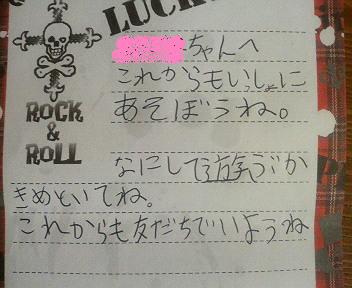 LUCK
ちゃんへ
これからもいっしょに
あそぼうね。
ROCK
&
ROLL
なにして遊ぶか
きめといてね。
これからも友だちでいようね